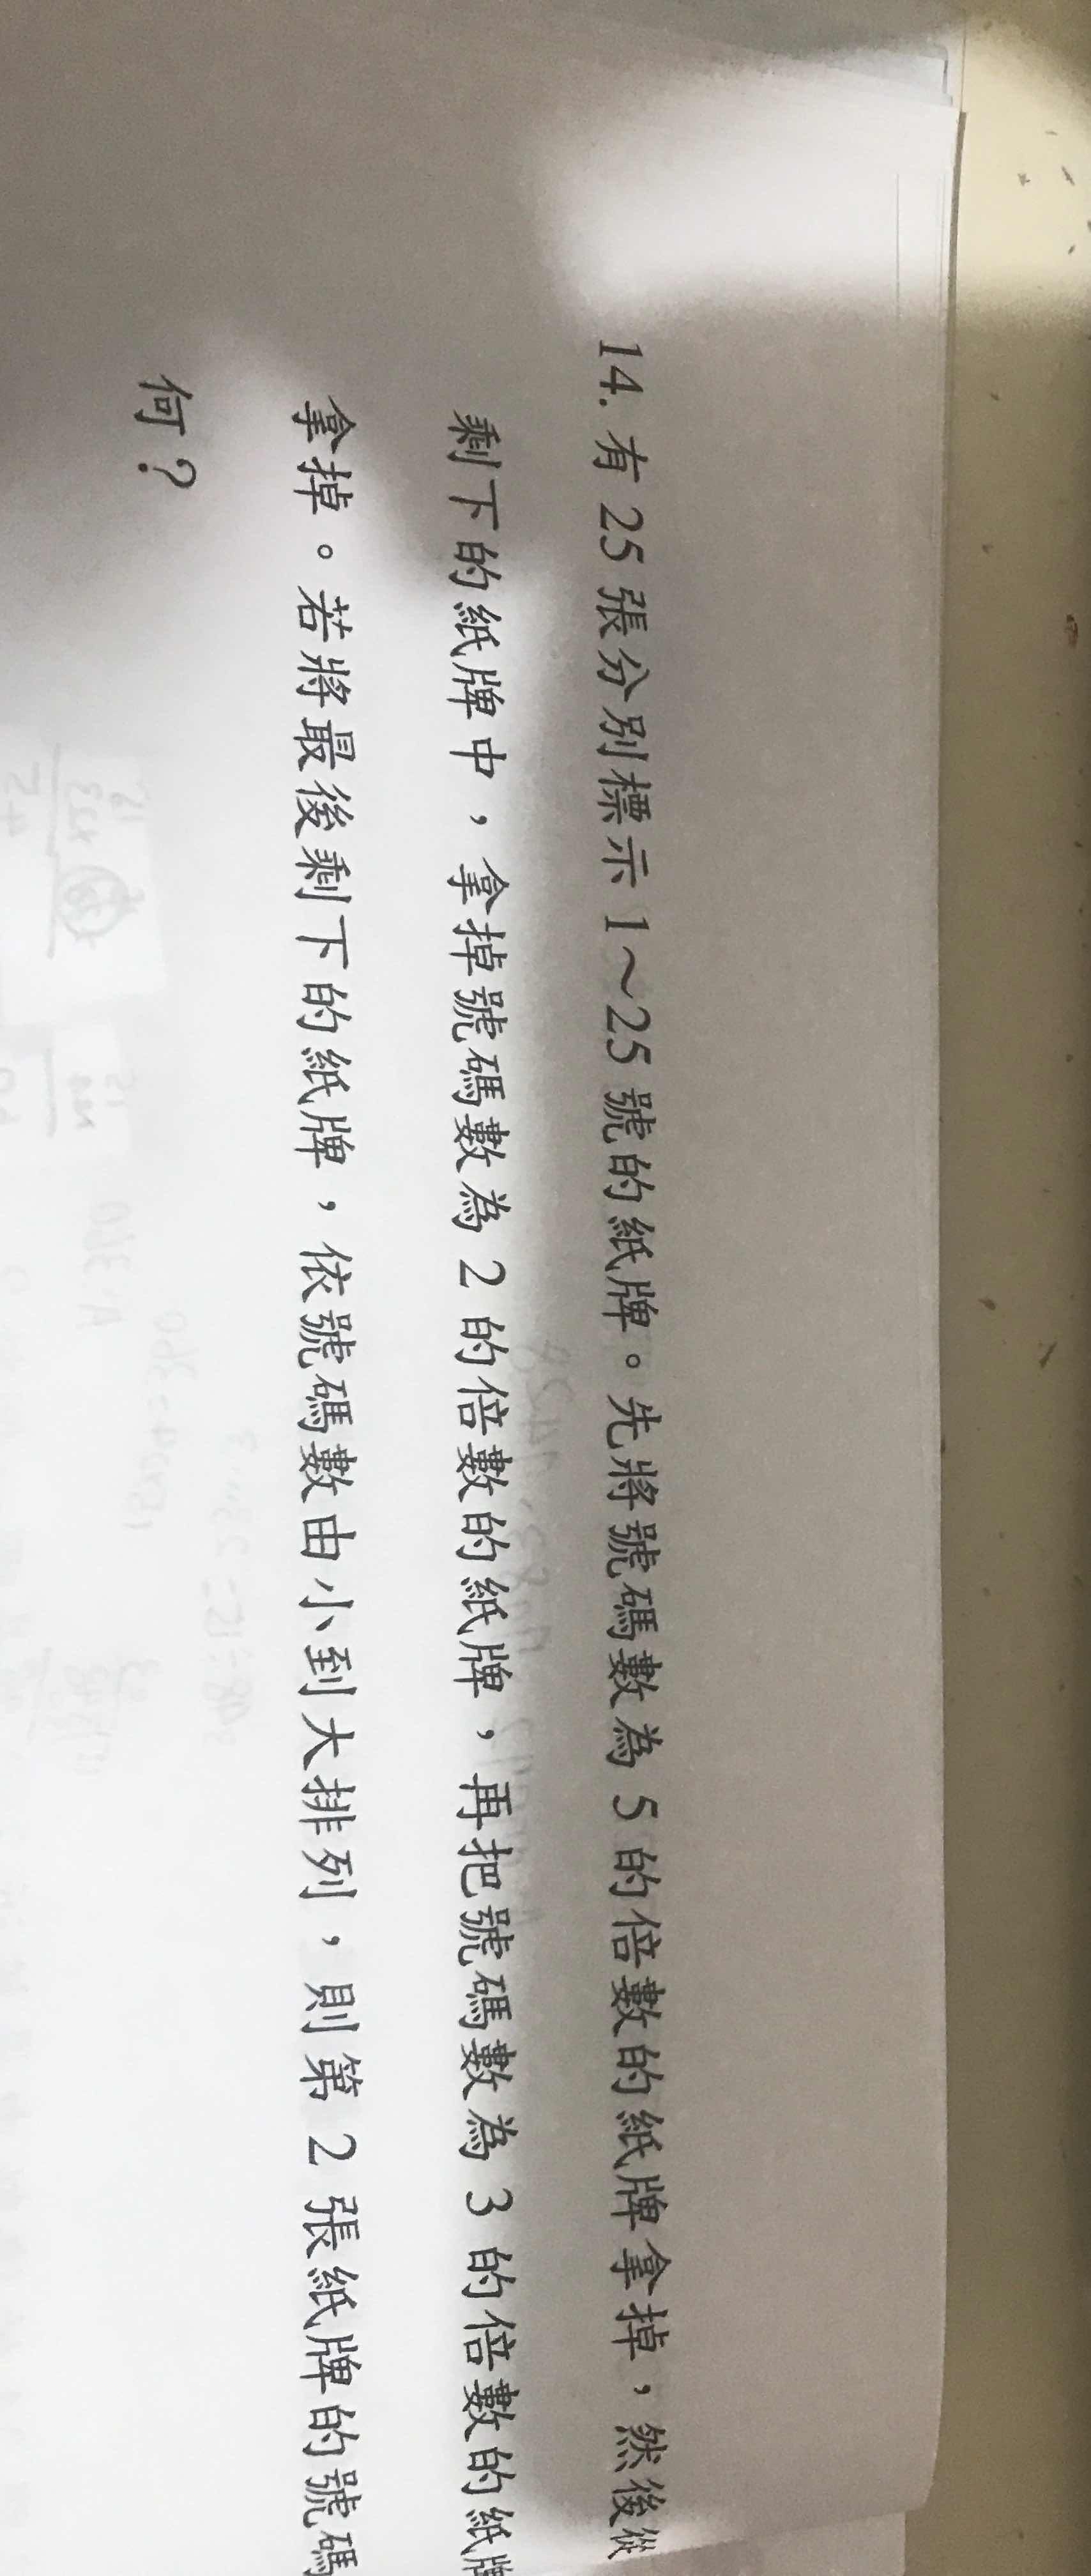 14. 有 25 張分別標示 1～25 號的紙牌。先將號碼數為 5 的倍數的紙牌拿掉，然後從
剩下的紙牌中，拿掉號碼數為 2 的倍數的紙牌，再把號碼數為 3 的倍數的紙牌
拿掉。若將最後剩下的紙牌，依號碼數由小到大排列，則第 2 張紙牌的號碼
何？